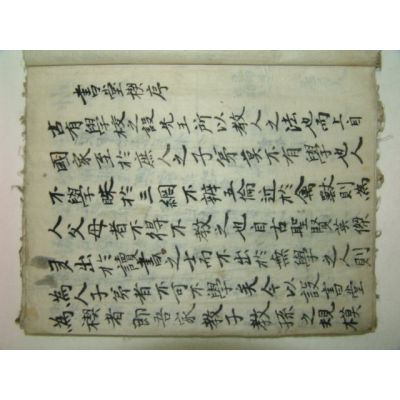 書堂稧序
古有學校之設先王所以教人之法也而上自
國家至於庶人之子弟莫不有學也人
不學昧於三綱不辨五倫近於禽獸則為
人父母者不得不教之也自古聖賢英傑
出於讀書之士而不出於無學之人則
為人子弟者不可不學矣今以設書堂
為稧者即吾家教子教孫之規模